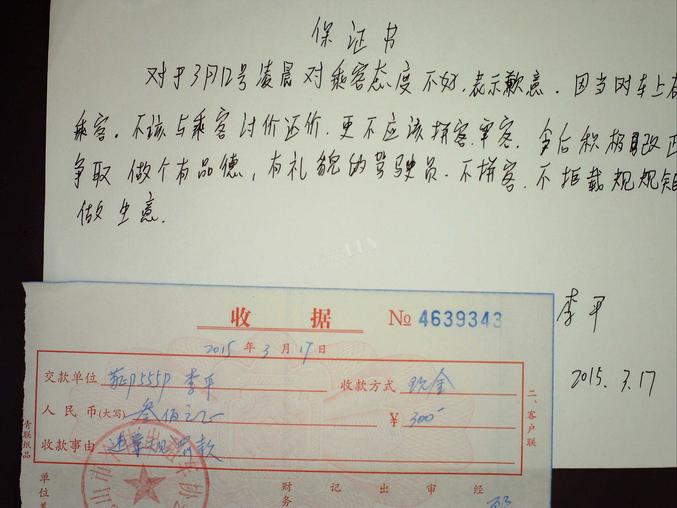 保证书
对于3月12号凌晨对乘客态度不好,表示歉意.因当时车上有
乘客.不该与乘客讨价还价.更不应该拼客.宰客.今后积极改正
争取做个有品德,有礼貌的驾驶员.不拼客.不拒载规规矩
做生意.
李平
2015.3.17
收据 № 4639343
2015年3月17日
交款单位 李平 收款方式 现金
人民币(大写) 叁佰元 ¥ 300-
收款事由 违章 罚款
二、客户联
青联纸品
单位 财务 记 出 审 经
山市